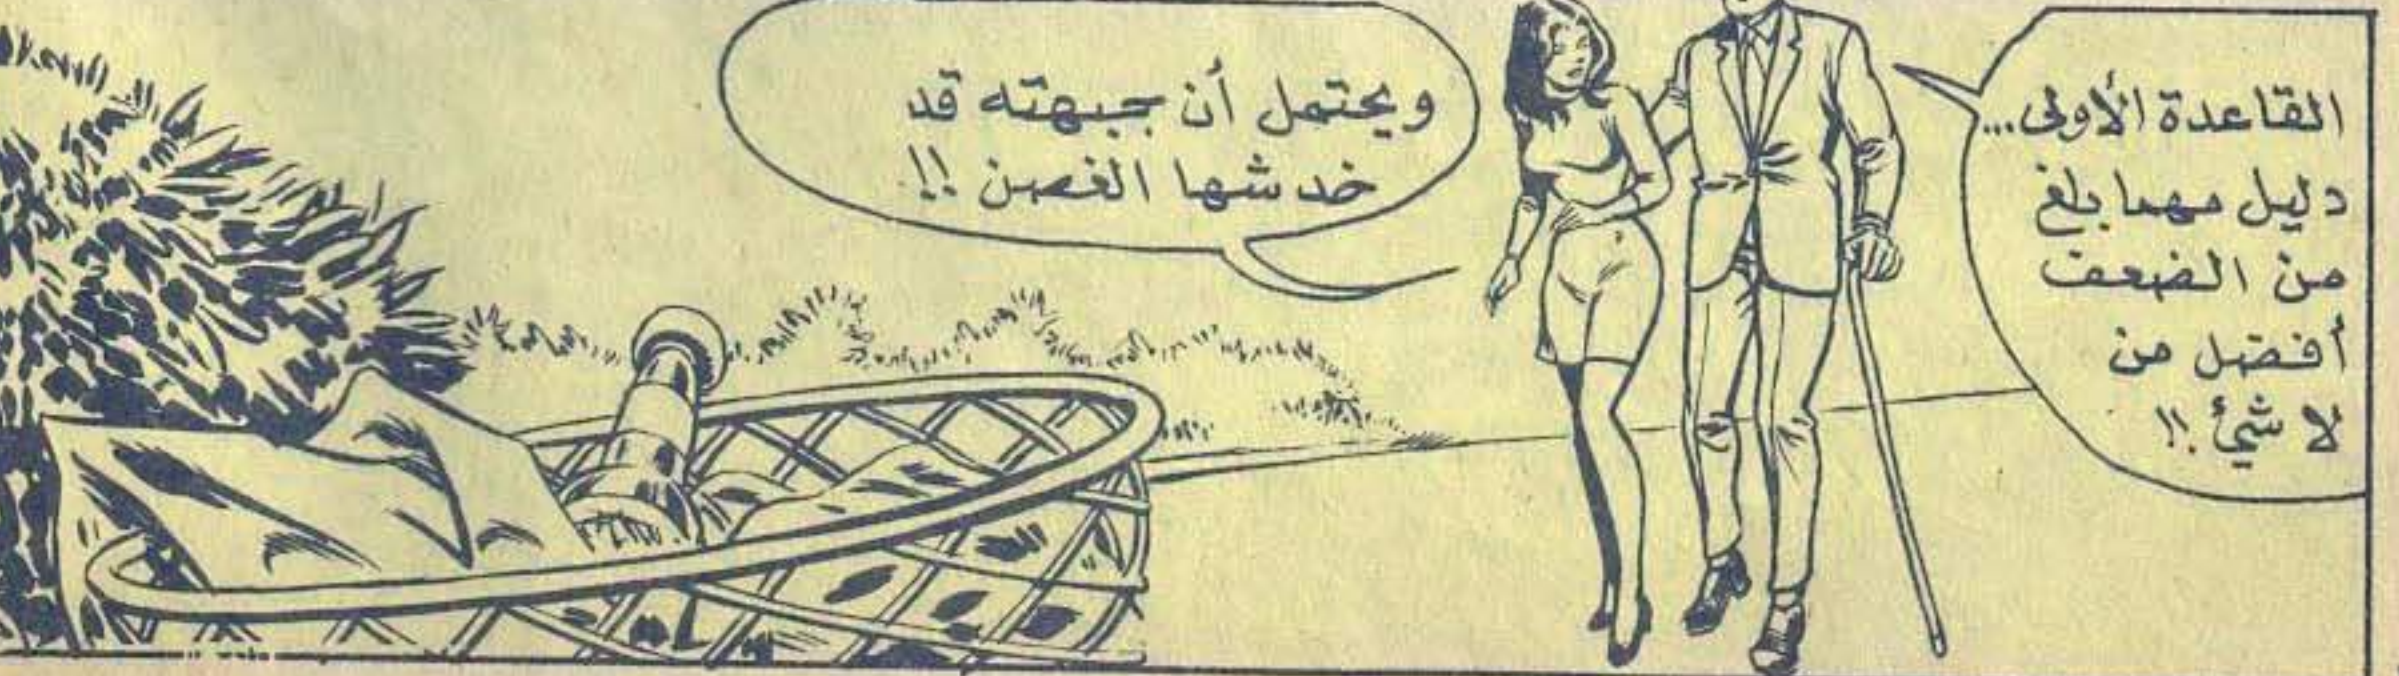 القاعدة الأولى...
دليل مهما بلغ
من الضعف
أفضل من
لا شيئ !!
ويحتمل أن جبهته قد
خدشها الغصن !!